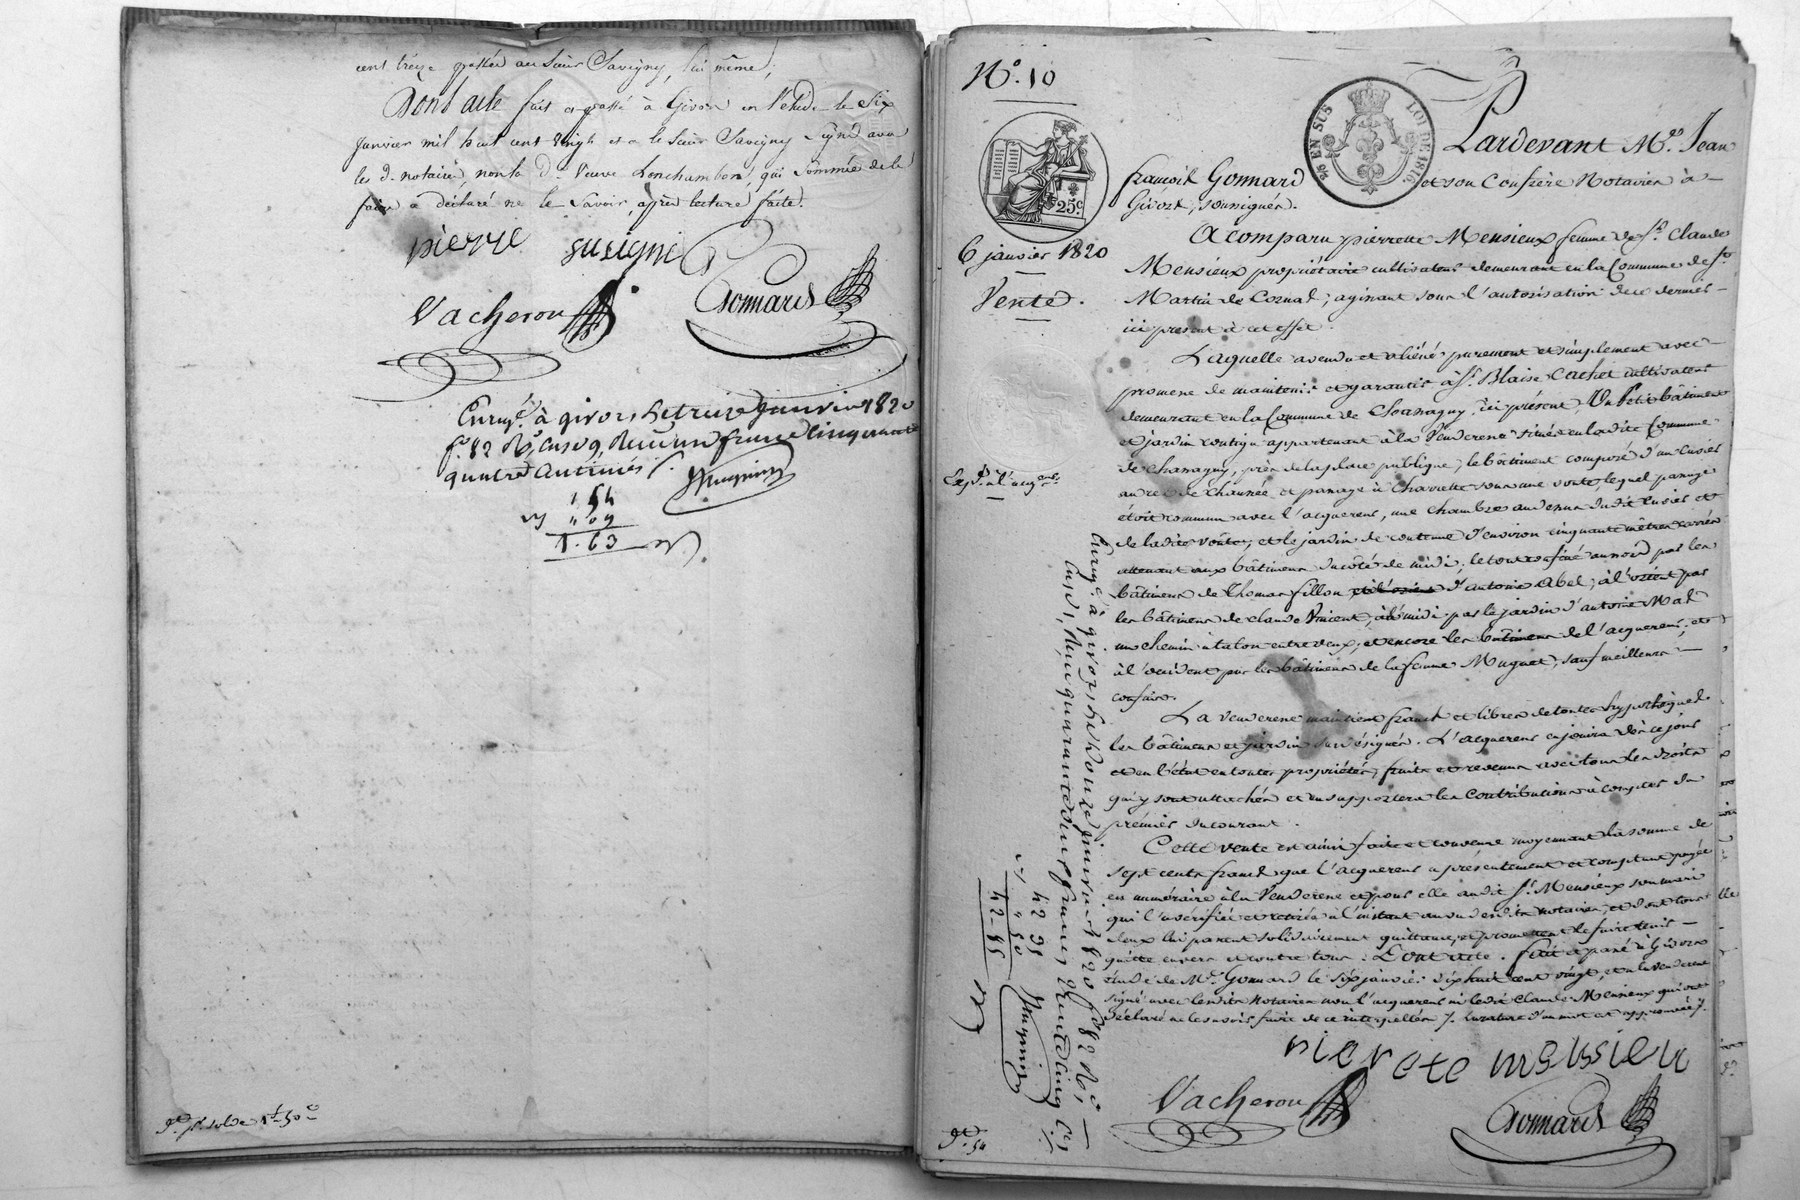 cent treize passée au sieur Savigny, lui même;
Dont acte fait et passé à Givors en l'étude le six
janvier mil huit cent vingt et a le sieur Savigny signé avec
les d. notaires, non la d. veuve Lonchambon, qui sommée de le
faire a déclaré ne le savoir, après lecture faite.
pierre savigni
Vacheron Gonnard
Enreg.é à givors le treize janvier 1820
f.° 82 R.°, Cases 9, Reçu un franc cinquante
quatre centimes
1 54
" 09
1. 63
N.° 10
25 EN SUS
LOI DE 1816.
25.c
6 janvier 1820
Vente.
Exp.é à l'acq.eur
Pardevant M.e Jean
françois Gonnard et son Confrère Notaires à
Givors, soussignés.
A comparu pierrette Mensieux femme de S.r Claude
Mensieux propriétaire cultivateur demeurant en la Commune de S.t
Martin de Cornas; agissant sous l'autorisation de ce dernier
ici présent à cet effet.
Laquelle a vendu et aliéné purement et simplement avec
promesse de maintenir et garantir à S.r Blaise Cachet cultivateur
demeurant en la Commune de Chassagny, ici présent, Un petit bâtiment
et jardin contigu appartenant à la Venderesse situés en ladite Commune
de Chassagny, près de la place publique; le bâtiment composé d'un Cuvier
au rez de chaussée, et passage à Charette sous une voute, lequel passage
étoit commun avec l'acquereur, une chambre au dessus dudit Cuvier et
de ladite voute; et le jardin de contenue d'environ cinquante mètres carrés
attenant aux bâtiments du côté de midi; le tout confiné au nord par les
bâtiments de Thomas fillon d'antoine Abel; à l'orient par
les bâtiments de claude Vincent; à midi par le jardin d'antoine Mat
un chemin à talon entre deux, et encore les bâtiments de l'acquereur; et
à l'occident par les bâtiments de la femme Muguet, sauf meilleurs
confins.
La venderesse maintient francs et libres de toutes hypothèques
les bâtiment et jardin sus désignés. L'acquereur en jouira dès ce jour
et en l'état en toutes propriétés, fruits et revenus avec tous les droits
qui y sont attachés et en supportera les Contributions à compter du
premier du courant.
Cette vente est ainsi faite et convenue moyennant la somme de
sept cents francs que l'acquereur a présentement et comptant payée
en numéraire à la Venderesse et pour elle audit S.r Mensieux son mari
qui l'a vérifiée et retirée à l'instant au vu desdits notaires, et dont tous
deux lui passent solidairement quittance, et promettent le faire tenir
quitte envers et contre tous. Dont acte. fait et passé à Givors
étude de M.e Gonnard le six janvier dix huit cent vingt, et a la venderesse
signé avec lesdits Notaires non l'acquereur ni ledit Claude Mensieux qui ont
déclaré ne le savoir faire de ce interpellés
pierete mensieu
Vacheron Gonnard
Enreg.é à givors le douze janvier 1820 f.° 82 R.°,
Cas. 1, Reçu quarante deux francs trente cinq C.es
42 35
" 50
42. 85